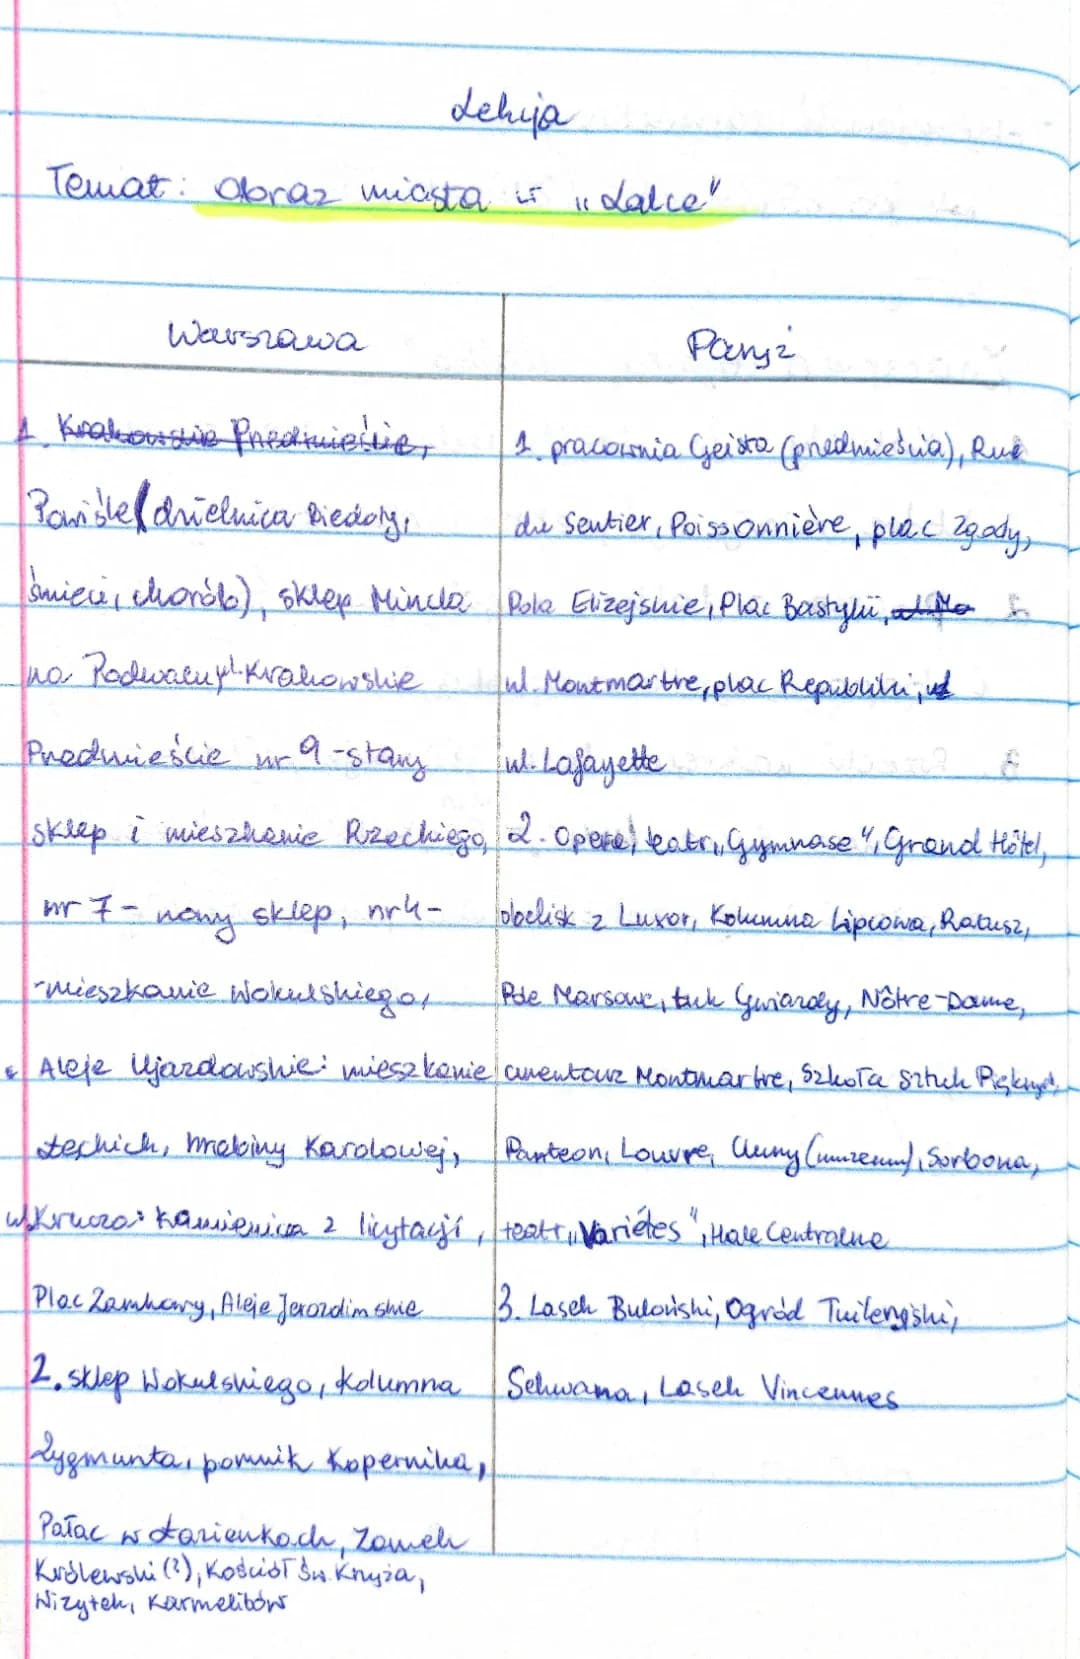 Lekcja
Temat: Obraz miasta w „Lalce"
Warszawa
1. Krakowskie Przedmieście,
Powiśle (dzielnica biedoty,
śmieci, chorób), sklep Mincla
na Podwalu, Krakowskie
Przedmieście nr 9 - stary
sklep i mieszkanie Rzeckiego,
nr 7 - nowy sklep, nr 4 -
- mieszkanie Wokulskiego,
Aleje Ujazdowskie: mieszkanie
Łęckich, hrabiny Karolowej,
ul. Krucza: kamienica z licytacji,
Plac Zamkowy, Aleje Jerozolimskie
2. sklep Wokulskiego, Kolumna
Zygmunta, pomnik Kopernika,
Pałac w Łazienkach, Zamek
Królewski (?), Kościół Św. Krzyża,
Wizytek, Karmelitów
Paryż
1. pracownia Geista (przedmieścia), Rue
du Sentier, Poissonnière, plac Zgody,
Pola Elizejskie, Plac Bastylii,
ul. Montmartre, plac Republiki,
ul. Lafayette
2. Opera, teatr „Gymnase", Grand Hôtel,
obelisk z Luxor, Kolumna Lipcowa, Ratusz,
Pole Marsowe, Łuk Gwiazdy, Nôtre-Dame,
cmentarz Montmartre, Szkoła Sztuk Pięknych,
Panteon, Louvre, Cluny (muzeum), Sorbona,
teatr „Variétes", Hale Centralne
3. Lasek Buloński, Ogród Tuileryjski,
Sekwana, Lasek Vincennes